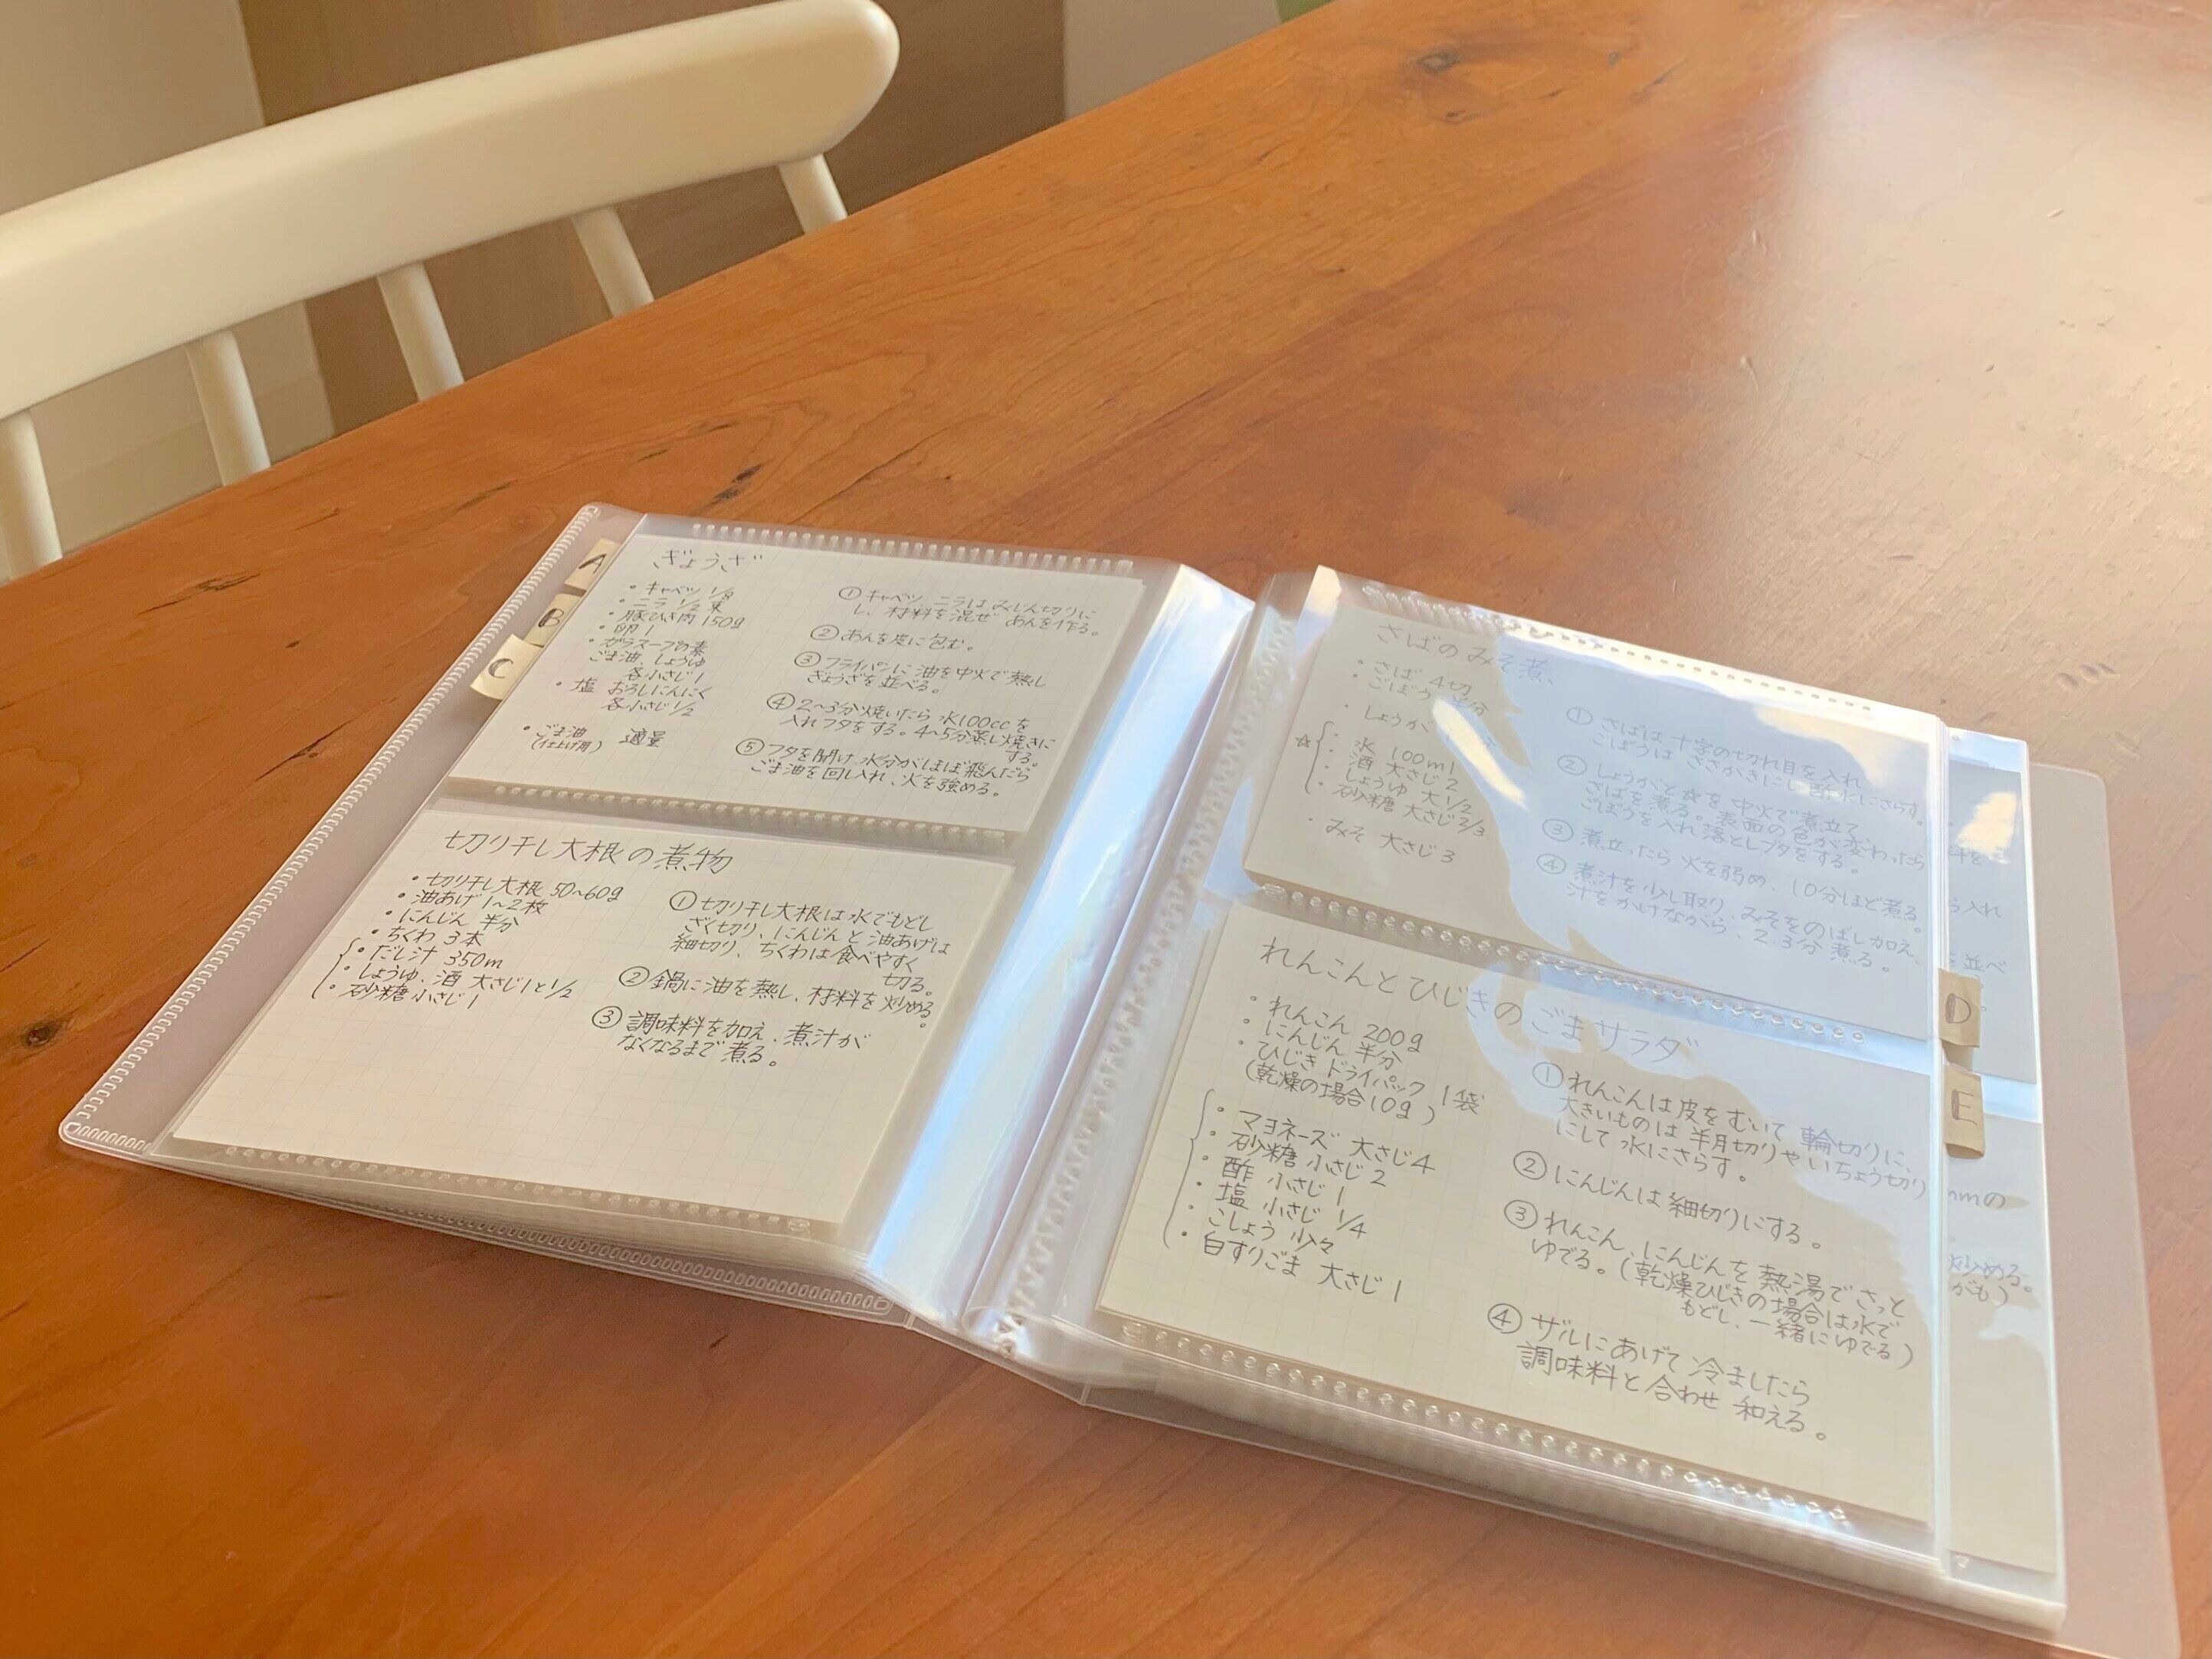 A
B
C
ぎょうざ
・キャベツ 1/8
・ニラ 1/2 束
・豚ひき肉 150g
・卵 1
・ガラスープの素
ごま油、しょうゆ
各小さじ1
・塩 おろしにんにく
各小さじ1/2
・ごま油 適量
(仕上げ用)
①キャベツ、ニラはみじん切りに
し、材料を混ぜ あんを作る。
②あんを皮に包む。
③フライパンに油を中火で熱し
ぎょうざを並べる。
④2~3分焼いたら 水100ccを
入れフタをする。4~5分蒸し焼きに
する。
⑤フタを開け 水分がほぼ飛んだら
ごま油を回し入れ、火を強める。
切り干し大根の煮物
・切り干し大根 50~60g
・油あげ 1~2枚
・にんじん 半分
・ちくわ 3本
・だし汁 350m
・しょうゆ、酒 大さじ1と1/2
・砂糖 小さじ1
①切り干し大根は水でもどし
ざく切り、にんじんと油あげは
細切り、ちくわは食べやすく
切る。
②鍋に油を熱し、材料を炒める
。
③調味料を加え、煮汁が
なくなるまで煮る。
さばのみそ煮
・さば 4切
・ごぼう 半分
・しょうが
☆
・水 100ml
・酒 大さじ2
・しょうゆ 大1/2
・砂糖 大さじ2/3
・みそ 大さじ3
① さばは十字の切れ目を入れ
ごぼうは ささがきにし 酢水にさらす。
② しょうがと☆を 中火で煮立て、
さばを煮る。表面の色が変わったら
ごぼうを入れ落としブタをする。
③ 煮立ったら 火を弱め、10分ほど煮る。
④ 煮汁を少し取り、みそをのばし加え、
汁をかけながら、2.3分 煮る。
れんこんとひじきのごまサラダ
・れんこん 200g
・にんじん 半分
・ひじき ドライパック 1袋
(乾燥の場合10g)
・マヨネーズ 大さじ4
・砂糖 小さじ2
・酢 小さじ1
・塩 小さじ 1/4
・こしょう 少々
・白すりごま 大さじ1
①れんこんは皮をむいて 輪切りに、
大きいものは 半月切りや いちょう切り
にして水にさらす。
②にんじんは細切りにする。
③れんこん、にんじんを熱湯でさっと
ゆでる。(乾燥ひじきの場合は水で
もどし、一緒にゆでる)
④ザルにあげて冷ましたら
調味料と合わせ 和える。
ら入れ
を並べ
D
E
mmの
炒める。
がも)